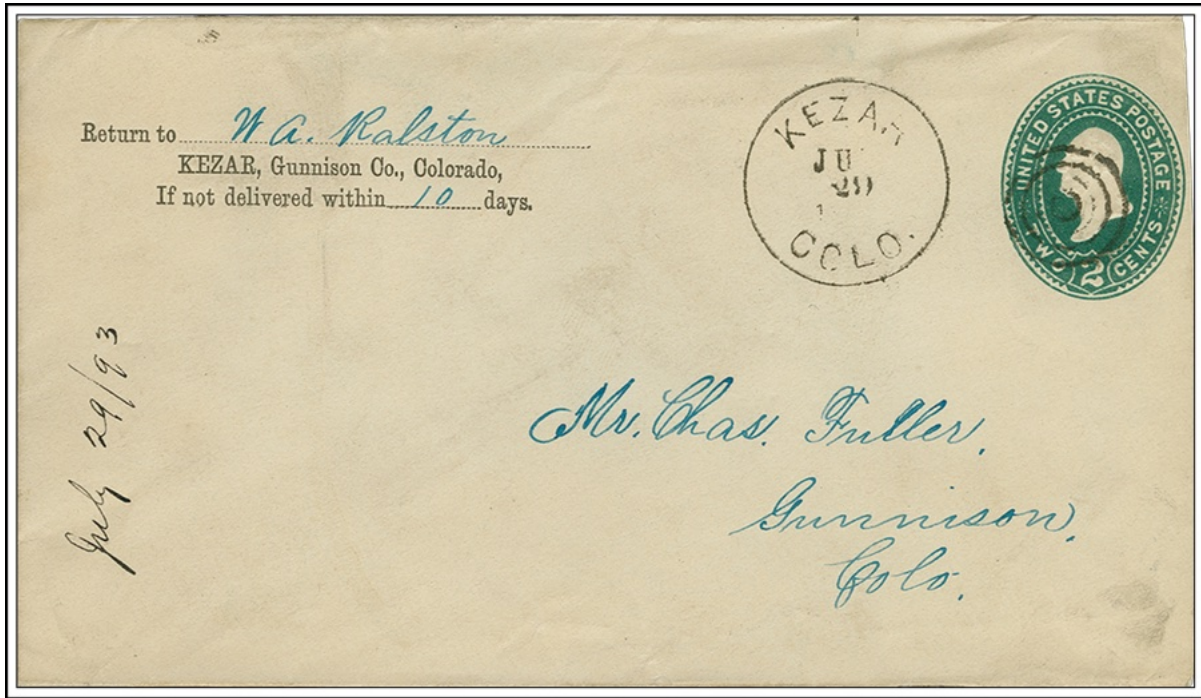 Return to W A. Ralston
KEZAR, Gunnison Co., Colorado,
If not delivered within 10 days.
KEZAR
JU
COLO.
UNITED STATES POSTAGE
TWO 2 CENTS
July 29/93
Mr. Chas. Fuller.
Gunnison,
Colo.